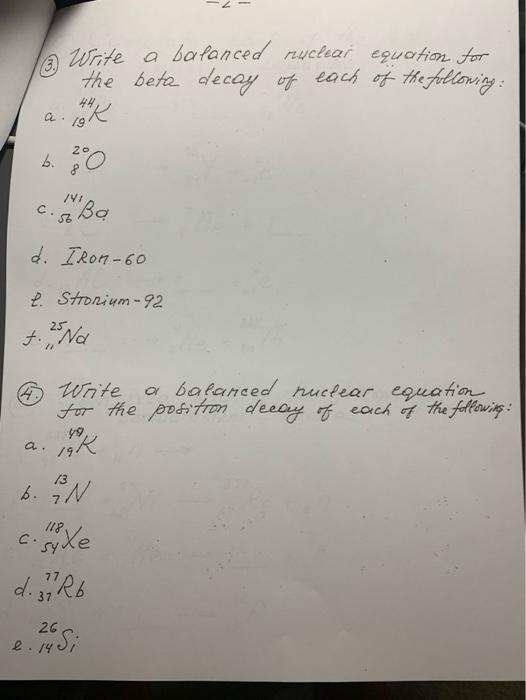 -2-
③ Write a balanced nuclear equation for
the beta decay of each of the following:
a. ⁴⁴₁₉K
b. ²⁰₈O
c. ¹⁴¹₅₆Ba
d. IRon-60
e. Stronium-92
f. ²⁵₁₁Na
④ Write a balanced nuclear equation
for the positron decay of each of the following:
a. ⁴⁹₁₉K
b. ¹³₇N
c. ¹¹⁸₅₄Xe
d. ⁷⁷₃₇Rb
e. ²⁶₁₄Si